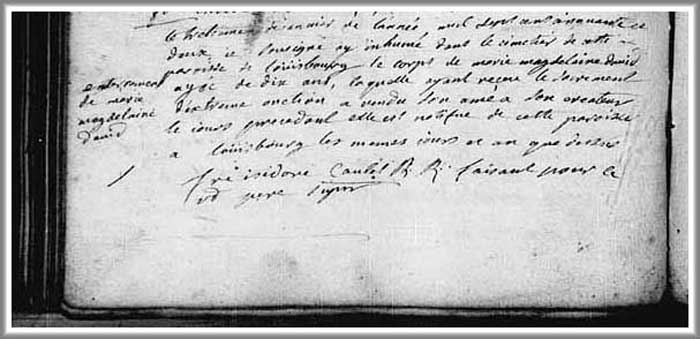 le huitieme de janvier de l'année mil sept cens cinquante et
deux je sousigné ay inhumé dans le cimetier de cette
paroisse de Louisbourg le corps de marie magdelaine david
ayge de dix ans, laquelle ayant reçeue le sacrement
d'extreme onction a rendu son ame a son createur
le jours precedant elle est notifue de cette paroisse
a Louisbourg les memes jours et an que dessus
frè isidore Caulet R. R. faisant pour le
rd pere supr
enterrement
de marie
magdelaine
david